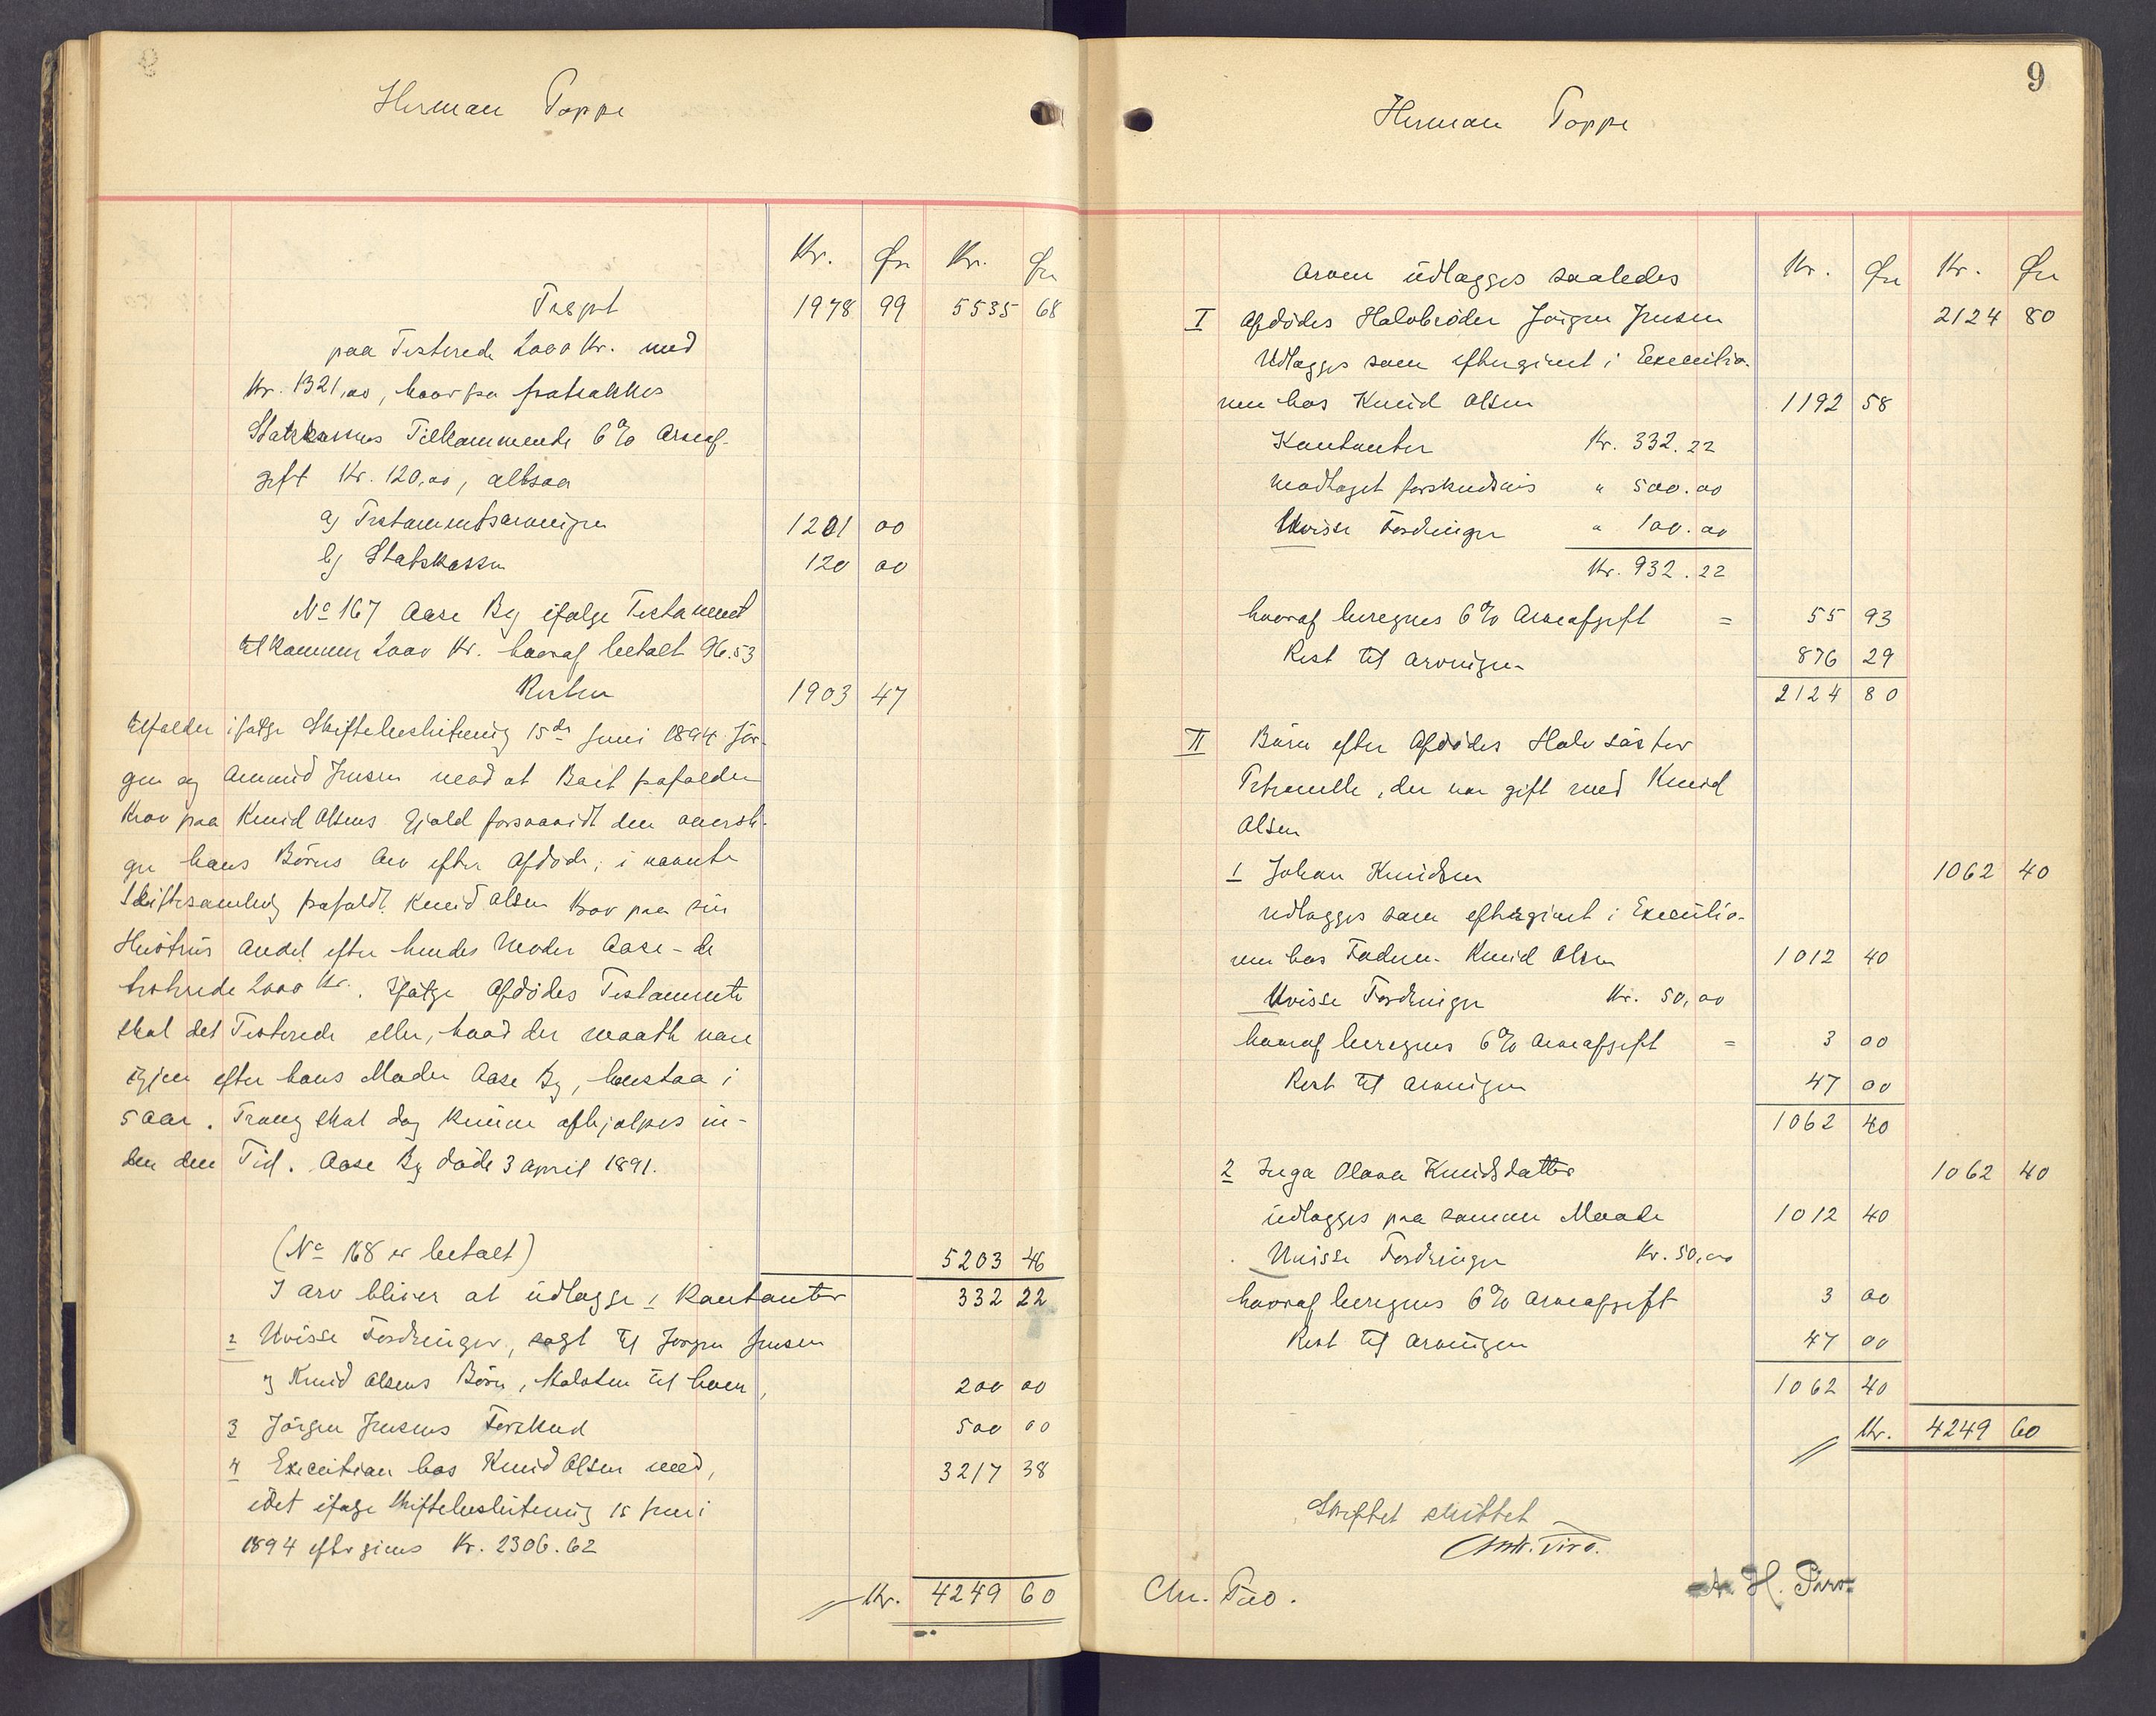 Herman Poppe
Kr. Øre Kr. Øre
Tr&sport 1978 99 5535 68
paa Testerede 2000 Kr. med
Kr. 1321,00, hvorfra fratrækkes
Statskassens Tilkommende 6% Arveaf-
gift Kr. 120,00, altsaa
a) Testamentsarvingen 1201 00
b) Statskassen 120 00
No 167 Aase By ifølge Testament
tilkommer 2000 Kr. hvoraf betalt 96.53
Resten 1903 47
tilfalder ifølge Skiftebeslutning 15de Juni 1894 Jør-
gen og Amund Jensen mod at Boet frafalder
Krav paa Knud Olsens Gjæld forsaavidt den oversti-
ger hans Børns Arv efter Afdøde; i nævnte
Skiftesamling frafaldt Knud Olsen Krav paa sin
Hustrus Andel efter hendes Moder Aase - de
testerede 2000 Kr. Ifølge Afdødes Testamente
skal det Testerede eller, hvad der maatte være
igjen efter hans Moder Aase By, henstaa i
5 Aar. Trang skal dog kunne afhjælpes in-
den den Tid. Aase By døde 3 April 1891.
(No 168 er betalt) 5203 46
I Arv bliver at udlægge 1 Kontanter 332 22
2 Uvisse Fordringer, solgt til Jørgen Jensen
og Knud Olsens Børn, Halvten til hver, 200 00
3 Jørgen Jensens Forskud 500 00
4 Execution hos Knud Olsen med, 3217 38
idet ifølge Skiftebeslutning 15 Juni
1894 eftergives Kr. 2306.62
Kr. 4249 60
9
Herman Poppe
Kr. Øre Kr. Øre
Arven udlægges saaledes
I Afdødes Halvbroder Jørgen Jensen 2124 80
Udlægges som eftergivet i Executio-
nen hos Knud Olsen 1192 58
Kontanter Kr. 332.22
Modtaget forskudsvis " 500.00
Uvisse Fordringer " 100.00
Kr. 932.22
hvoraf beregnes 6% Arveafgift = 55 93
Rest til Arvingen 876 29
2124 80
II Børn efter Afdødes Halvsøster
Petronelle, der var gift med Knud
Olsen
1 Johan Knudsen 1062 40
udlægges som eftergivet i Executio-
nen hos Faderen Knud Olsen 1012 40
Uvisse Fordringer Kr. 50,00
hvoraf beregnes 6% Arveafgift = 3 00
Rest til Arvingen 47 00
1062 40
2 Inga Olava Knudsdatter 1062 40
udlægges paa samme Maade 1012 40
Uvisse Fordringer Kr. 50,00
hvoraf beregnes 6% Arveafgift 3 00
Rest til Arvingen 47 00
1062 40
Kr. 4249 60
Skiftet sluttet
Chr. Piro.
A. H. Piro